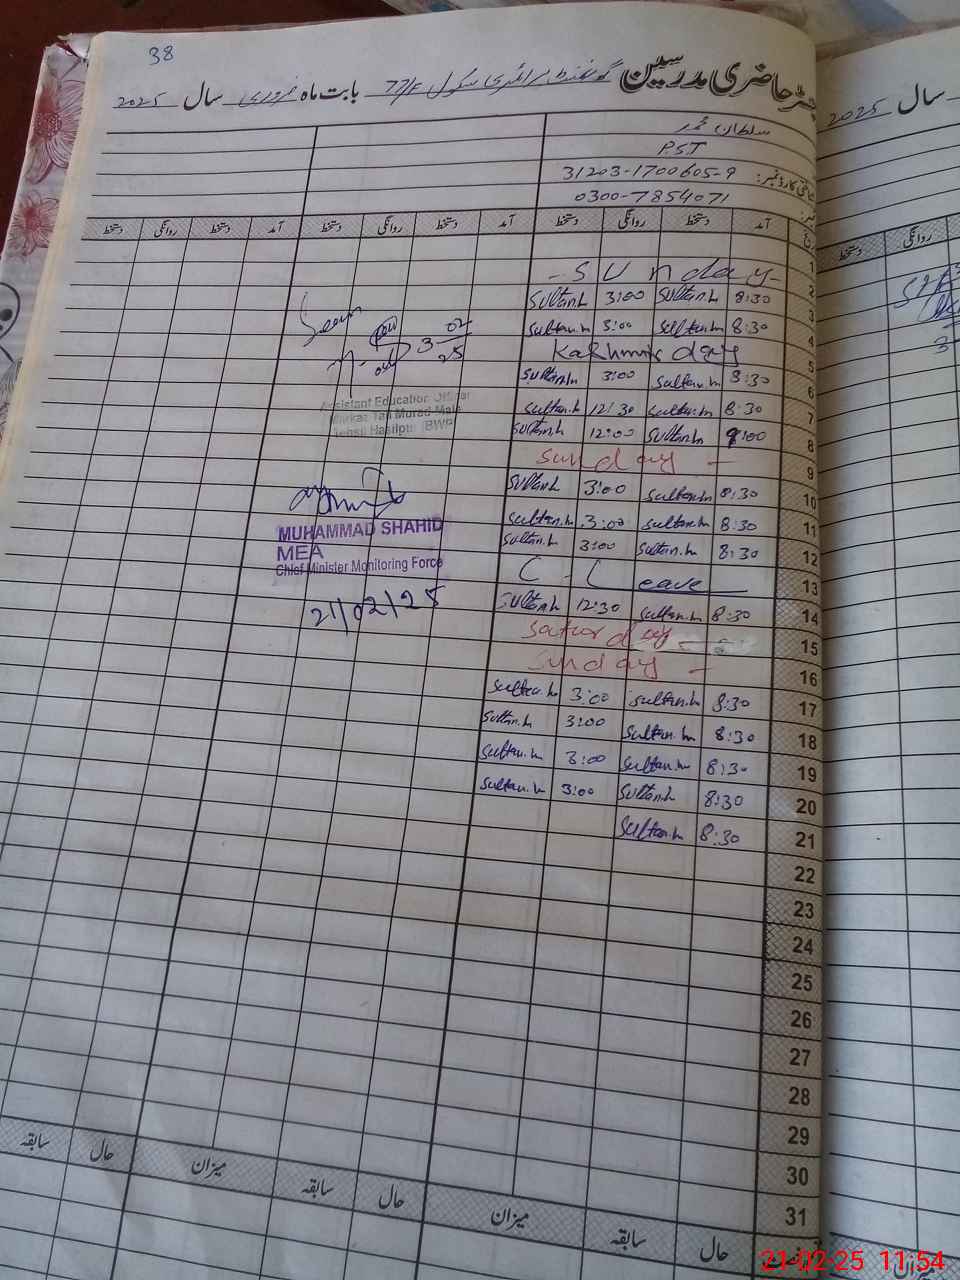 38
رجسٹر حاضری مدرسین گورنمنٹ پرائمری سکول 77/F بابت ماہ فروری سال 2025
سال 2025
سلطان محمد
P.S.T
شناختی کارڈ نمبر: 31203-1700605-9
0300-7854071
آمد دستخط روانگی دستخط آمد دستخط روانگی دستخط آمد دستخط روانگی دستخط
روانگی دستخط
1
2 - Sunday -
3 8:30 Sultan.m 3:00 Sultan.m
4 8:30 Sultan.m 3:00 Sultan.m
5 Kashmir day
6 8:30 Sultan.m 3:00 Sultan.m
7 8:30 Sultan.m 12:30 Sultan.m
8 9:00 Sultan.m 12:00 Sultan.m
9 Sunday -
10 8:30 Sultan.m 3:00 Sultan.m
11 8:30 Sultan.m 3:00 Sultan.m
12 8:30 Sultan.m 3:00 Sultan.m
13 C-Leave
14 8:30 Sultan.m 12:30 Sultan.m
15 Saturday -
16 Sunday -
17 8:30 Sultan.m 3:00 Sultan.m
18 8:30 Sultan.m 3:00 Sultan.m
19 8:30 Sultan.m 3:00 Sultan.m
20 8:30 Sultan.m 3:00 Sultan.m
21 8:30 Sultan.m
22
23
24
25
26
27
28
29
30
31
Seen
3-02-25
Assistant Education Officer
Markaz Tail Murad Male
Tehsil Hasilpur (BWP)
MUHAMMAD SHAHID
MEA
Chief Minister Monitoring Force
21/02/25
حال سابقہ میزان حال سابقہ میزان حال سابقہ
میزان
21-02-25 11:54